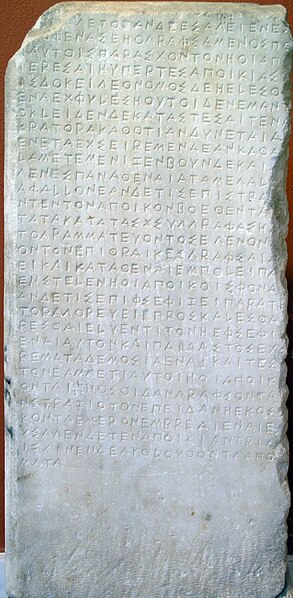 ΛΕΤΟΕΑΝΔΕΕΣΑΓΕΙΕΝΕ
ΟΦΕΝΑΣΕΗΟΓΡΑΦΣΑΜΕΝΟΣΠ
ΑΥΤΟΙΣΠΑΡΑΣΧΟΝΤΟΝΗΟΙΑΠ
ΙΕΡΕΣΑΙΗΥΠΕΡΤΕΣΑΠΟΙΚΙΑΣ
ΣΔΟΚΕΙΓΕΟΝΟΜΟΣΔΕΗΕΛΕΣΘ
ΕΝΑΕΧΦΥΛΕΣΗΟΥΤΟΙΔΕΝΕΜΑΝ
ΟΚΛΕΙΔΕΝΔΕΚΑΤΑΣΤΕΣΑΙΤΕΝ
ΡΑΤΟΡΑΚΑΘΟΤΙΑΝΔΥΝΕΤΑΙΑ
ΕΝΕΤΑΕΧΣΕΙΡΕΜΕΝΑΕΑΝΚΑΘΑ
ΛΑΜΕΤΕΜΕΝΙΖΕΝΒΟΥΝΔΕΚΑΙ
ΓΕΝΕΣΠΑΝΑΘΕΝΑΙΑΤΑΜΕΓΑΛ
ΑΦΑΛΛΟΝΕΑΝΔΕΤΙΣΕΠΙΣΤΡΑ
ΝΤΕΝΤΟΝΑΠΟΙΚΟΝΒΟΕΘΕΝΤΑ
ΤΑΤΑΚΑΤΑΤΑΣΧΣΥΓΓΡΑΦΑΣΗ
ΤΟΓΡΑΜΜΑΤΕΥΟΝΤΟΣΕΓΕΝΟΝ
ΟΝΤΟΝΕΠΙΘΡΑΙΚΕΣΓΡΑΦΣΑΙ
ΕΙΚΑΙΚΑΤΑΘΕΝΑΙΕΜΠΟΛΕΙΠΑ
ΕΝΣΤΕΛΕΝΗΟΙΑΠΟΙΚΟΙΣΦΟΝΑ
ΑΝΔΕΤΙΣΕΠΙΦΣΕΦΙΖΕΙΠΑΡΑΤΕ
ΤΟΡΑΓΟΡΕΥΕΙΕΠΡΟΣΚΑΛΕΣΘΑ
ΡΕΣΘΑΙΕΛΥΕΝΤΙΤΟΝΗΕΦΣΕΦΙ
ΕΝΑΙΑΥΤΟΝΚΑΙΠΑΙΔΑΣΤΟΣΕΧ
ΡΕΜΑΤΑΔΕΜΟΣΙΑΕΝΑΙΚΑΙΤΕΣ
ΤΟΝΕΑΜΜΕΤΙΑΥΤΟΙΗΟΙΑΠΟΙΚ
ΟΝΤΑΙΗΟΣΟΙΔΑΝΓΡΑΦΣΟΝΤΑ
ΝΣΤΡΑΤΙΟΤΟΝΕΠΕΙΔΑΝΗΕΚΟΣ
ΚΟΝΤΑΕΜΕΡΟΝΕΜΒΡΕΑΙΕΝΑΙΕ
ΧΣΑΓΕΝΔΕΤΕΝΑΠΟΙΚΙΑΝΤΡΙΑ
ΙΣΧΙΝΕΝΔΕΑΚΟΛΟΥΘΟΝΤΑΑΠΟ
ΜΑΤΑ